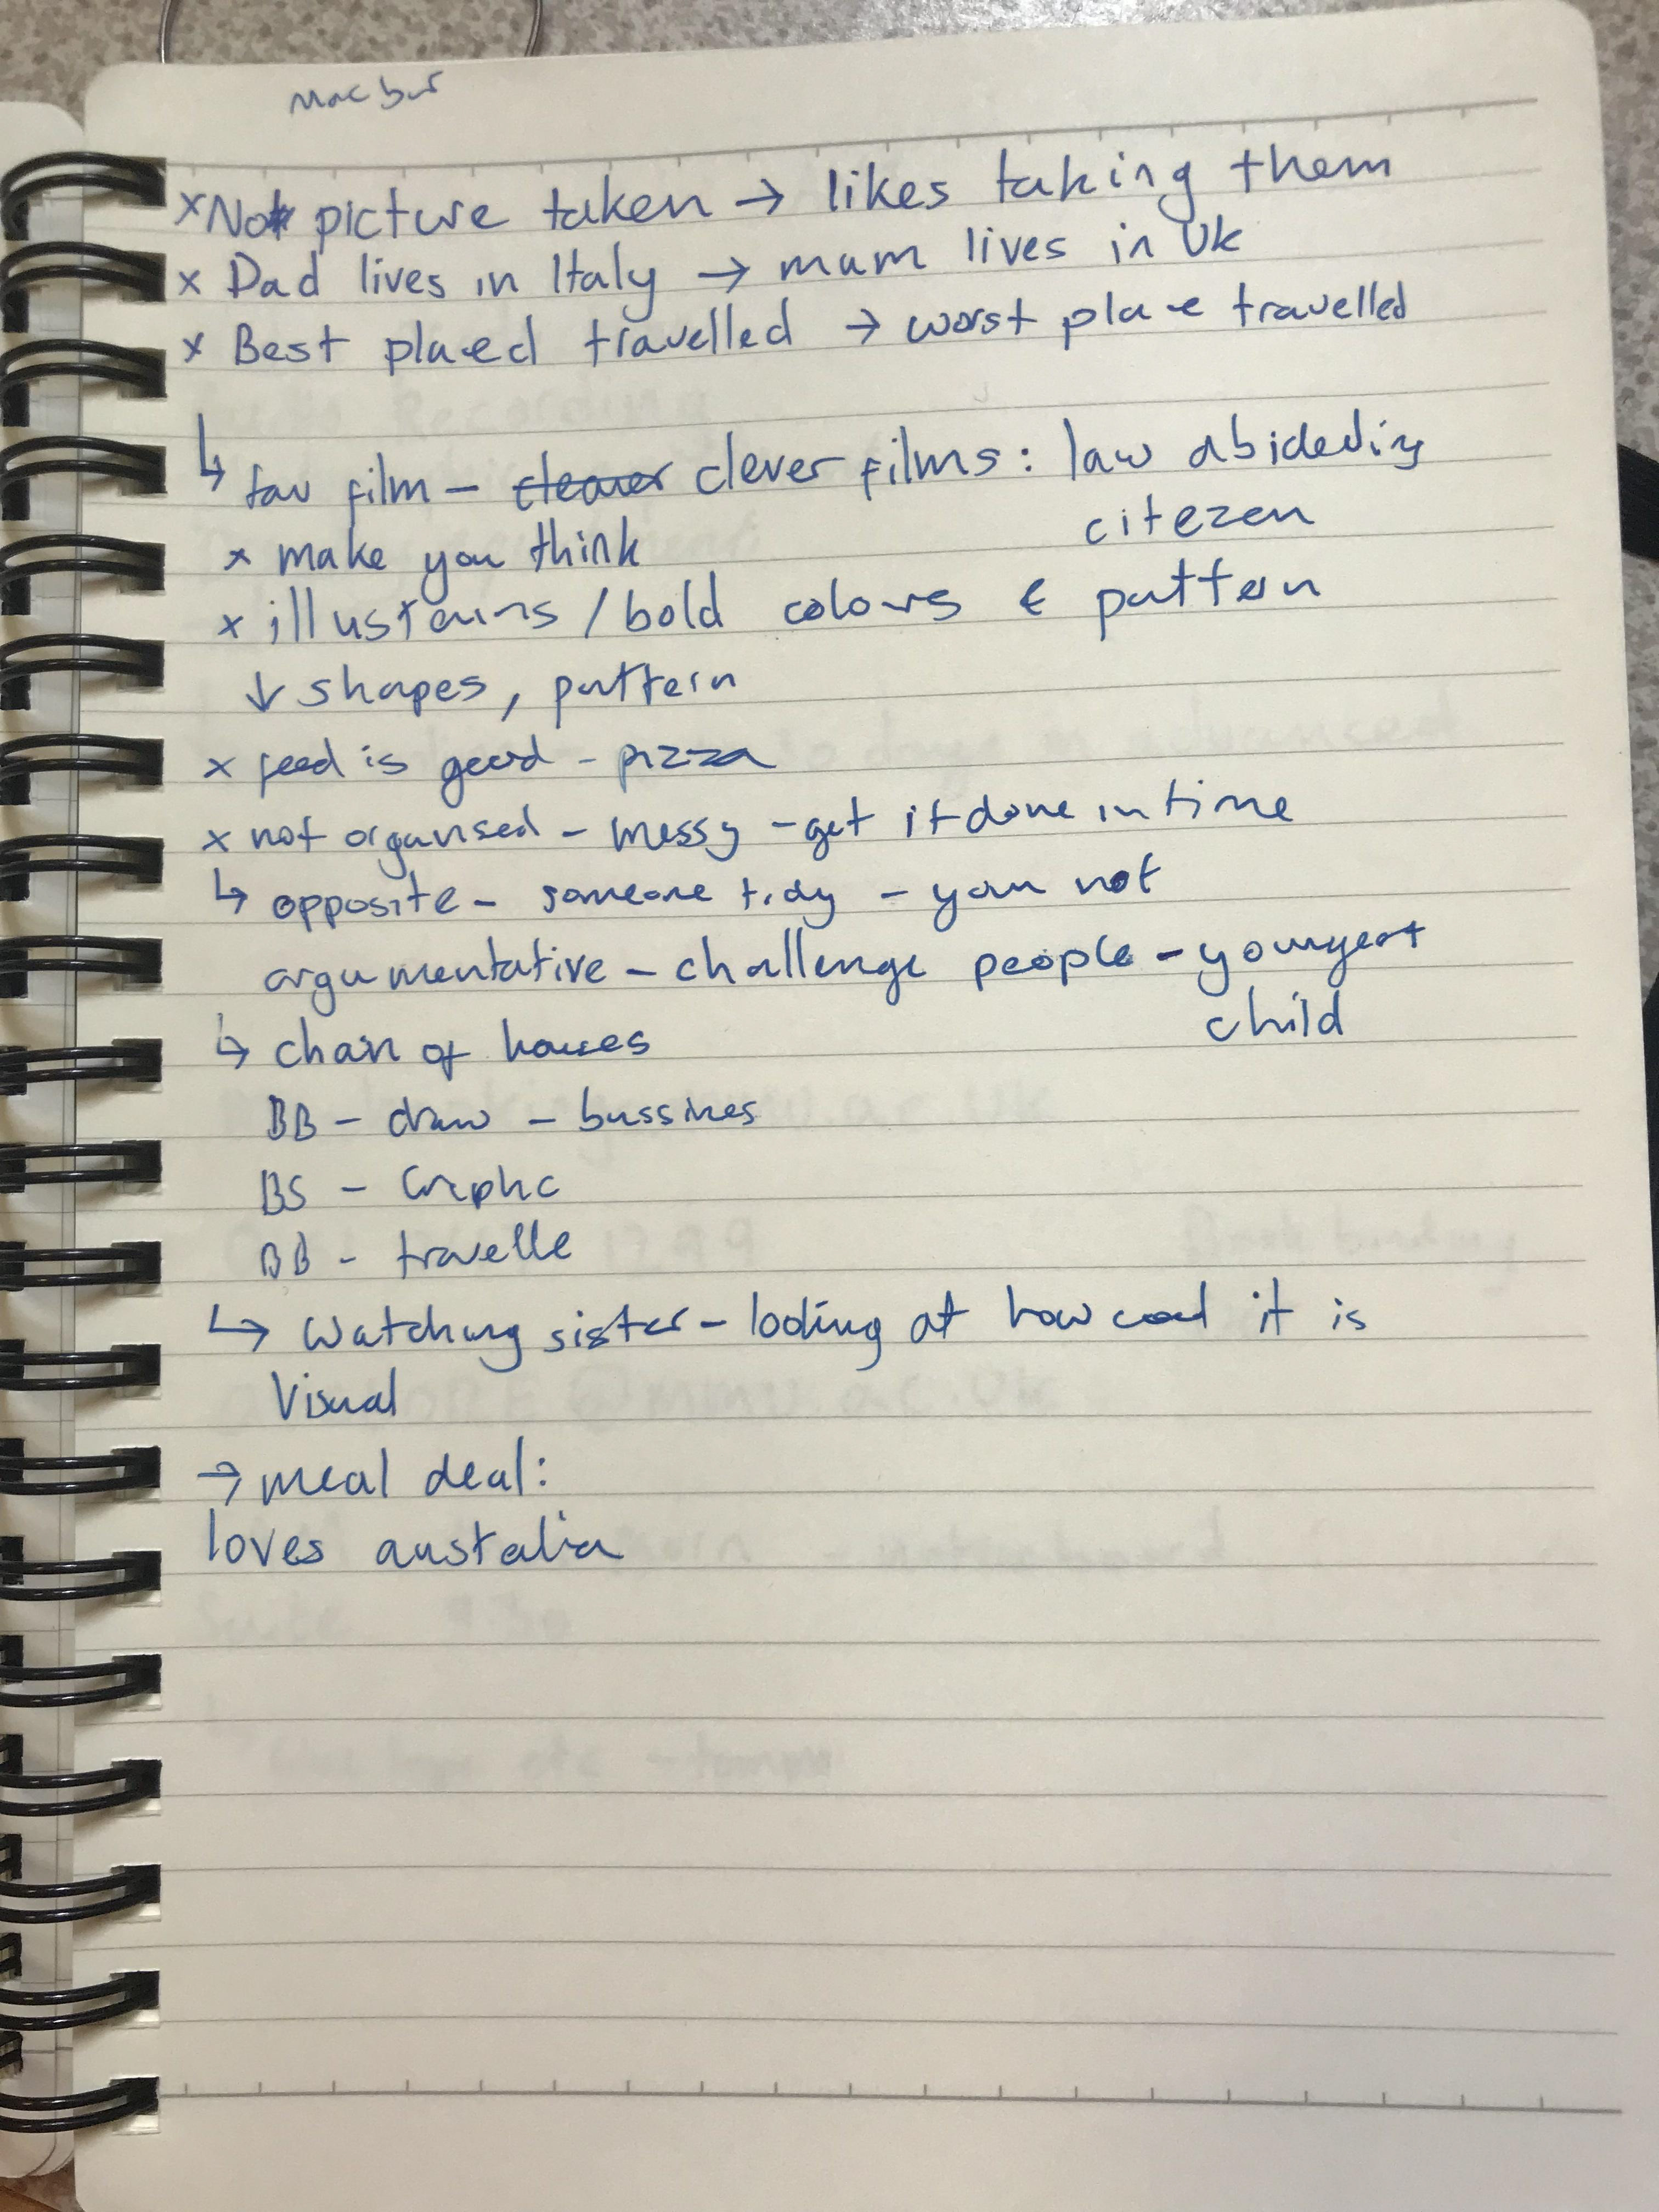 x Not picture taken → likes taking them
x Dad lives in Italy → mum lives in Uk
x Best placed travelled → worst place travelled
↳ fav film - clever films: law abidediing
citezen
x make you think
x illustains / bold colours & pattern
↓ shapes, pattern
x food is good - pizza
x not organised - messy - get it done in time
↳ opposite - someone tidy - your not
argumentative - challenge people - youngest
child
↳ chain of houses
BB - draw - bussines
BS - Graphc
BB - travelle
↳ Watching sister - looking at how cool it is
Visual
→ meal deal:
loves austalia